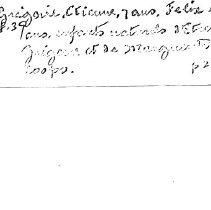 Grégoire, Etienne, 7 ans, Felix
p. 39 ans, enfants naturels d'Etie
Grégoire et de Marguerite
Coops. p 2